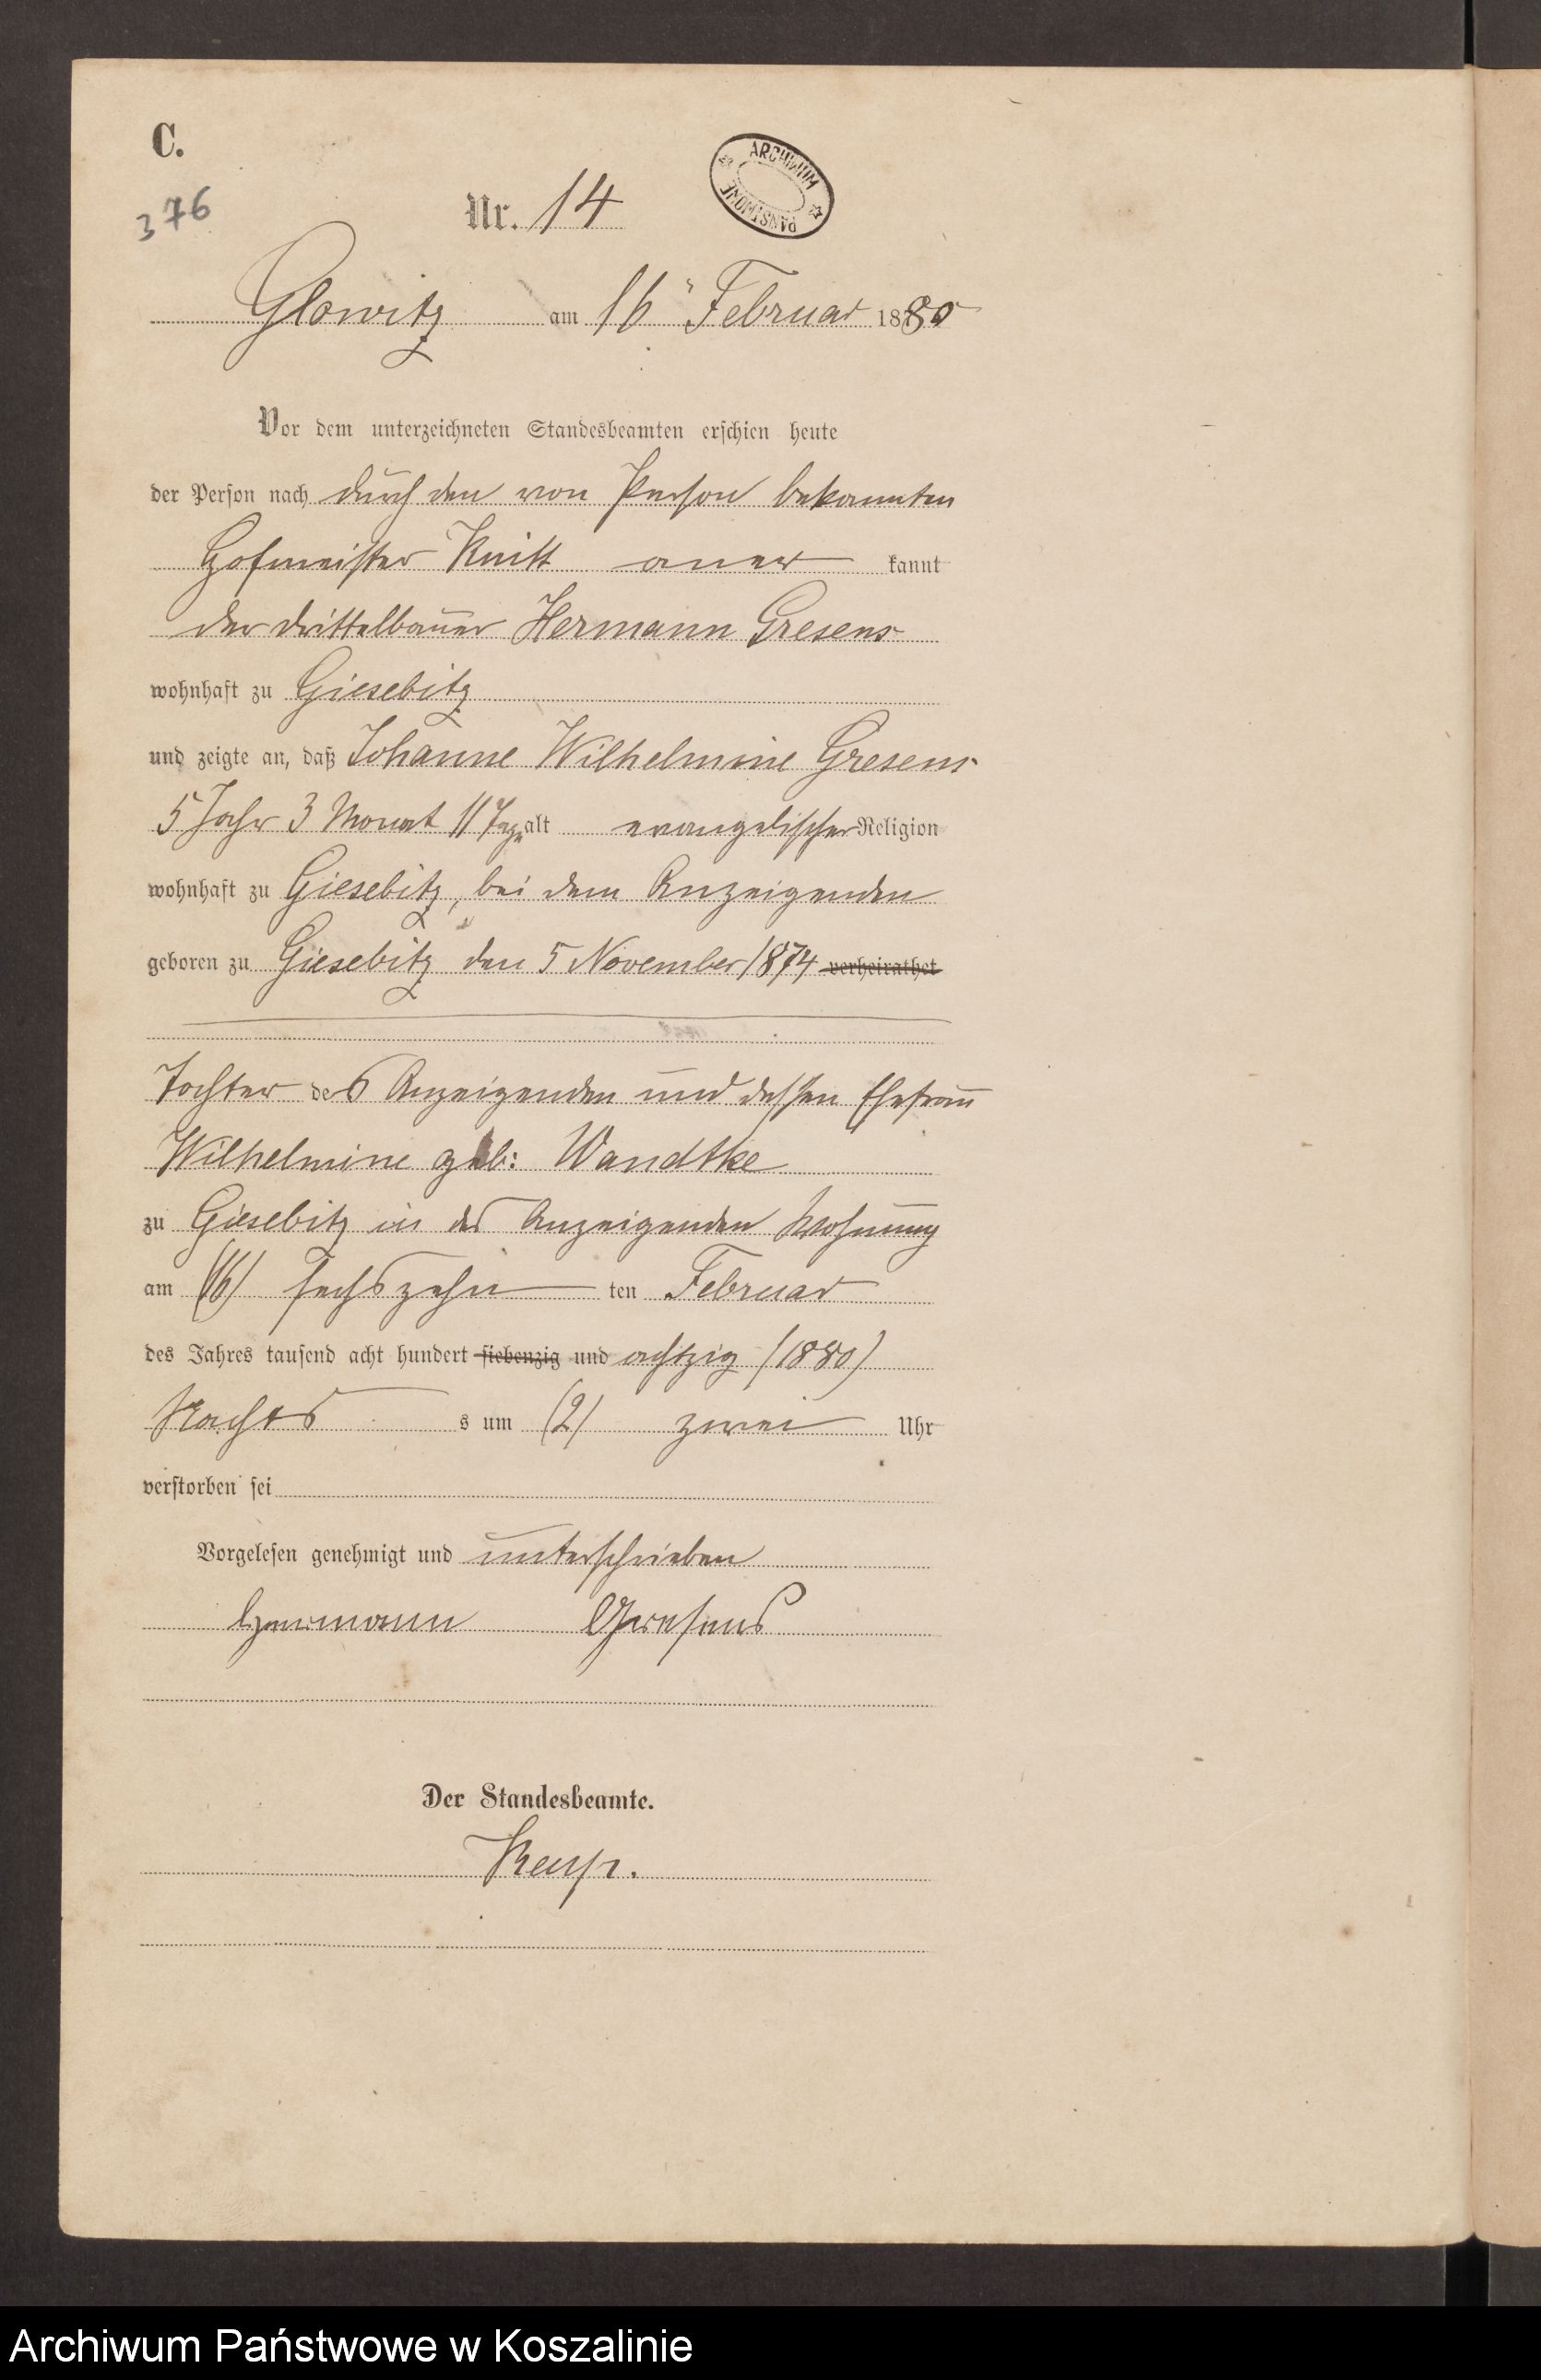 C.
376
Nr. 14
ARCHIWUM PAŃSTWOWE
Glowitz am 16ten Februar 1880
Vor dem unterzeichneten Standesbeamten erschien heute
der Person nach durch den von Person bekannten
Hofmeister Knitt aner kannt
der Drittelbauer Hermann Gresens
wohnhaft zu Giesebitz
und zeigte an, daß Johanne Wilhelmine Gresens
5 Jahr 3 Monat 11 Tage alt evangelischer Religion
wohnhaft zu Giesebitz, bei dem Anzeigenden
geboren zu Giesebitz den 5 November 1874 verheirathet
Tochter des Anzeigenden und dessen Ehefrau
Wilhelmine geb: Wandtke
zu Giesebitz in des Anzeigenden Wohnung
am (16) sechszehn ten Februar
des Jahres tausend acht hundert siebenzig und achtzig (1880)
Nachts s um (2) zwei Uhr
verstorben sei
Vorgelesen genehmigt und unterschrieben
Hermann Gresens
Der Standesbeamte.
Archiwum Państwowe w Koszalinie